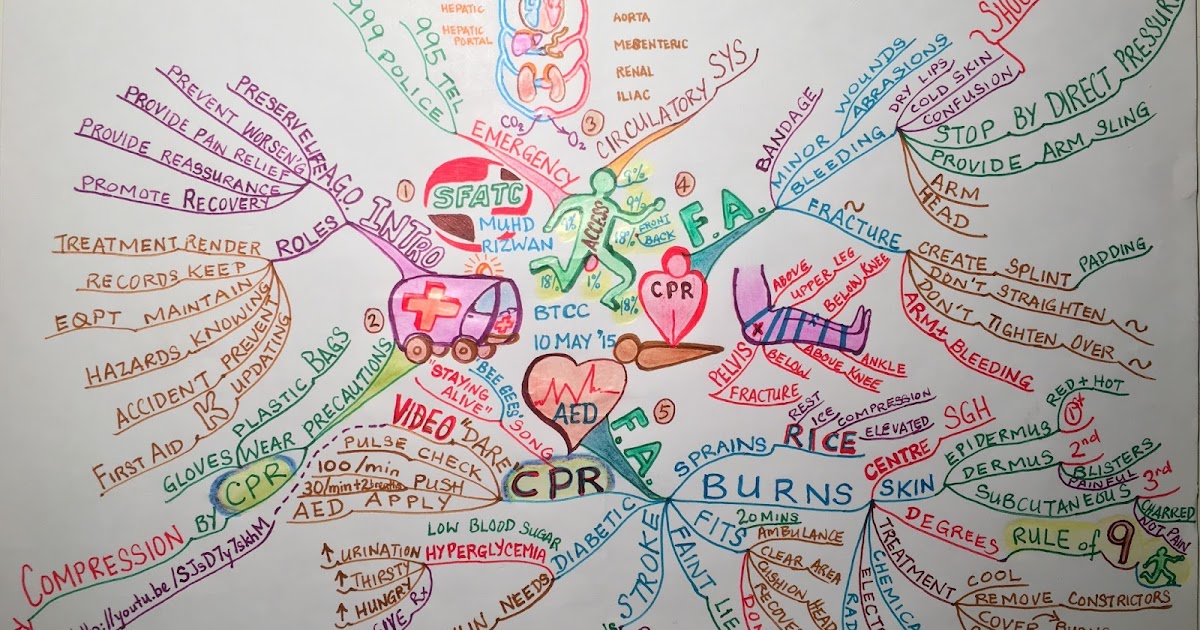 HEPATIC
HEPATIC
PORTAL
AORTA
MESENTERIC
RENAL
ILIAC
CO2
O2
3
CIRCULATORY SYS
999 POLICE
995 TEL
EMERGENCY
1
SFATC
MUHD
RIZWAN
ACCESS
9%
9%
18%
FRONT
BACK
18%
1%
18%
BTCC
10 MAY '15
INTRO
AGO
PRESERVE LIFE
PREVENT WORSEN'G
PROVIDE PAIN RELIEF
PROVIDE REASSURANCE
PROMOTE RECOVERY
ROLES
TREATMENT RENDER
RECORDS KEEP
EQPT MAINTAIN
HAZARDS KNOWING
ACCIDENT PREVENT
FIRST AID K UPDATING
2
PRECAUTIONS
GLOVES WEAR
PLASTIC BAGS
CPR
COMPRESSION BY
http://youtu.be/SJsD7y7skhM
VIDEO "DARE"
"STAYING
ALIVE"
"BEE GEES"
SONG
CPR
PULSE CHECK
100/min
30/min+2breaths PUSH
AED APPLY
AED
4
F.A.
CPR
BANDAGE
MINOR WOUNDS
ABRASIONS
BLEEDING
DRY LIPS
COLD SKIN
CONFUSION
SHOCK
STOP BY DIRECT PRESSURE
PROVIDE ARM SLING
ARM
HEAD
FRACTURE
CREATE SPLINT PADDING
DON'T STRAIGHTEN ~
DON'T TIGHTEN OVER ~
ARM+ BLEEDING
ABOVE
UPPER LEG
BELOW KNEE
PELVIS
BELOW
ABOVE KNEE
ANKLE
FRACTURE
5
F.A.
SPRAINS
RICE
REST
ICE
COMPRESSION
ELEVATED
BURNS
CENTRE SGH
SKIN
EPIDERMUS
RED + HOT
1st
DERMUS
2nd
BLISTERS
PAINFUL
SUBCUTANEOUS
3rd
CHARKED
NOT PAIN
DEGREES
RULE of 9
TREATMENT
COOL
REMOVE CONSTRICTORS
COVER BURNS
CHEMICA
ELECT
RAD
FITS
20 MINS
AMBULANCE
CLEAR AREA
CUSHION HEAD
RECOVER
DON
FAINT
LIE
STROKE
DIABETIC
LOW BLOOD SUGAR
HYPERGLYCEMIA
↑ URINATION
↑ THIRSTY
↑ HUNGRY
GIVE Rx
NEEDS